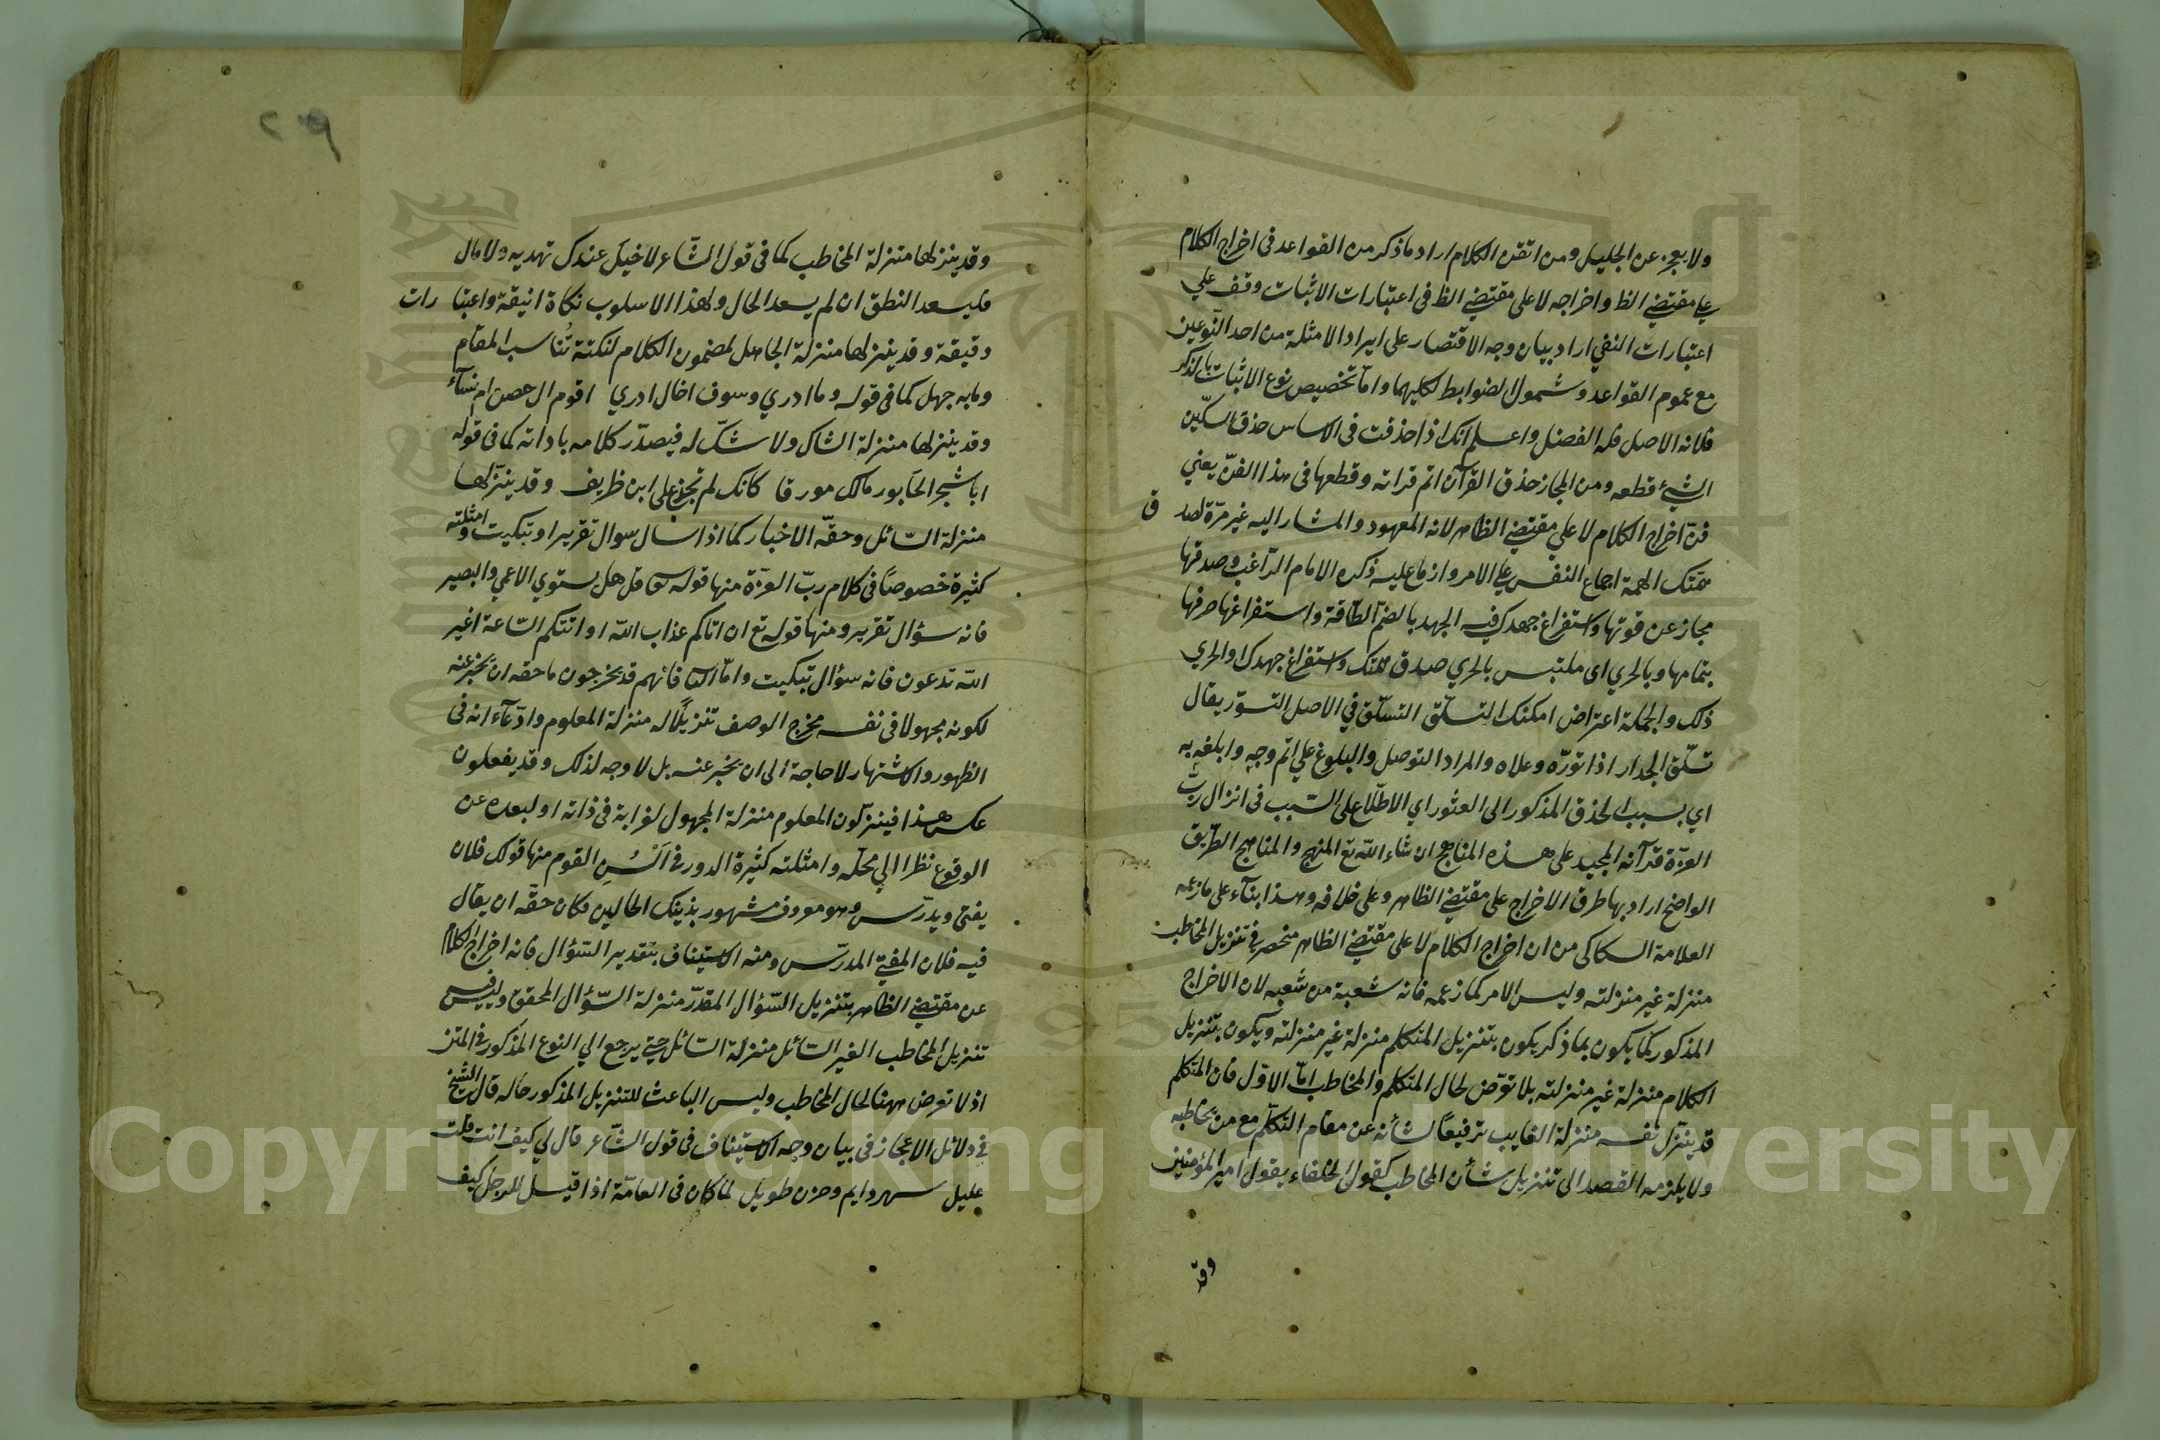 ولا يعجز عن الجليل ومن اتقن الكلام اراد ما ذكر من القواعد في اخراج الكلام
على مقتضي الظ واخراجه لا على مقتضي الظ في اعتبارات الاثبات وقف علي
اعتبارات النفي اراد بيان وجه الاقتصار على ايراد الامثلة من احد النوعين
مع عموم القواعد وشمول الضوابط لكليهما واما تخصيص نوع الاثبات بالذكر
فلانه الاصل فله الفضل واعلم انك اذا حذقت في الاساس حذق السكّين
الشيء قطعه ومن المجاز حذق القرآن اتم قراته وقطعها في هذا الفنّ يعني
فنّ اخراج الكلام لا علي مقتضي الظاهر لانه المعهود والمشار اليه غير مرّة لصد
ق
همّتك الهمة اجماع النفس على الامر وازماع عليه ذكره الامام الرّاغب وصدقها
مجاز عن قوتها واستفراغ جهدك فيه الجهد بالضم الطّاقة واستفراغها صرفها
بتمامها وبالحري اى ملتبس بالحري صدق همّتك واستفراغ جهدك والحري
ذلك والجملة اعتراض امكنك التسلّق التسلّق في الاصل التسوّر يقال
تسلّق الجدار اذا تورّه وعلاه والمراد التوصل والبلوغ علي اتم وجه وابلغه به
اي بسبب الحذق المذكور الى العثور اي الاطّلاع على السّبب في انزال ربّ
العزّة قرآنه المجيد على هذه المناهج ان شاء اللّه تع المنهج والمناهج الطريق
الواضح اراد بها طرق الاخراج على مقتضي الظاهر وعلى خلافه وهذا بناء على ما زعمه
العلامة السكاكى من ان اخراج الكلام لا على مقتضي الظاهر منحصر في تنزيل المخاطب
منزلة غير منزلته وليس الامر كما زعمه فانه شعبة من شعبه لان الاخراج
المذكور كما يكون بما ذكر يكون بتنزيل المتكلم منزلة غير منزلته ويكون بتنزيل
الكلام منزلة غير منزلته بلا تعرّض لحال المتكلم والمخاطب امّا الاوّل فان المتكلم
قد ينزّل نفسه منزلة الغايب ترفيعًا لشأنه عن مقام التكلّم مع من يخاطبه
ولا يلزمه القصد الى تنزيل شأن المخاطب كقول الخلفاء يقول امير المؤمنين
وقد
٢٠٩
وقد ينزلها منزلة المخاطب كما في قول الشّاعر لا خيل عندك تهديه ولا مال
فليسعد النطق ان لم يسعد الحال ولهذا الاسلوب نكاة انيقة واعتبارات
دقيقة وقد ينزلها منزلة الجاهل لمضمون الكلام لنكتة تُناسب المقام
وما به جهل كما في قوله وما ادري وسوف اخال ادري اقوم ال حصن ام نسآء
وقد ينزلها منزلة الشاك ولا شكّ له فيصدّر كلامه باداته كما في قوله
ايا شجر الخابور مالك مورقا كانك لم تجزع على ابن طريف وقد ينزّلها
منزلة السّائل وحقّه الاخبار كما اذا سال سوال تقرير او تبكيت وامثلته
كثيرة خصوصًا في كلام ربّ العزّة منها قوله تع قل هل يستوي الاعمي والبصير
فانه سؤال تقرير ومنها قوله تع ان اتاكم عذاب اللّه او اتتكم السّاعة اغير
اللّه تدعون فانه سؤال تبكيت وامّا الثا فانهم قد يخرجون ما حقه ان يخبر عنه
لكونه مجهولا في نفسه مخرج الوصف تنزيلًا له منزلة المعلوم وادّعآء انه في
الظهور والاشتهار لا حاجة الى ان يخبر عنه بل لا وجه لذلك وقد يفعلون
عكس هذا فينزّلون المعلوم منزلة المجهول لغرابة في ذاته او لبعده عن
الوقوع نظرا الي محلّه وامثلته كثيرة الدور في السُنِ القوم منها قولك فلان
يفتى ويدرّس وهو معروف مشهور بذينك الحالين فكان حقّه ان يقال
فيه فلان المفتي المدرّس ومنه الاستيناف بتقدير السّؤال فانه اخراج الكلام
عن مقتضي الظاهر بتنزيل السّؤال المقدّر منزلة السّؤال المحقق وليس فيه
تنزيل المخاطب الغير السّائل منزلة السّائل حتي يرجع الي النوع المذكور في المتن
اذ لا تعرض ههنا لحال المخاطب وليس الباعث للتنزيل المذكور حاله قال الشيخ
في دلائل الاعجاز في بيان وجه الاستيناف في قول الشّاعر قال لي كيف انت قلت
عليل سهر دايم وحزن طويل لما كان في العامّة اذا قيل للرجل كيف